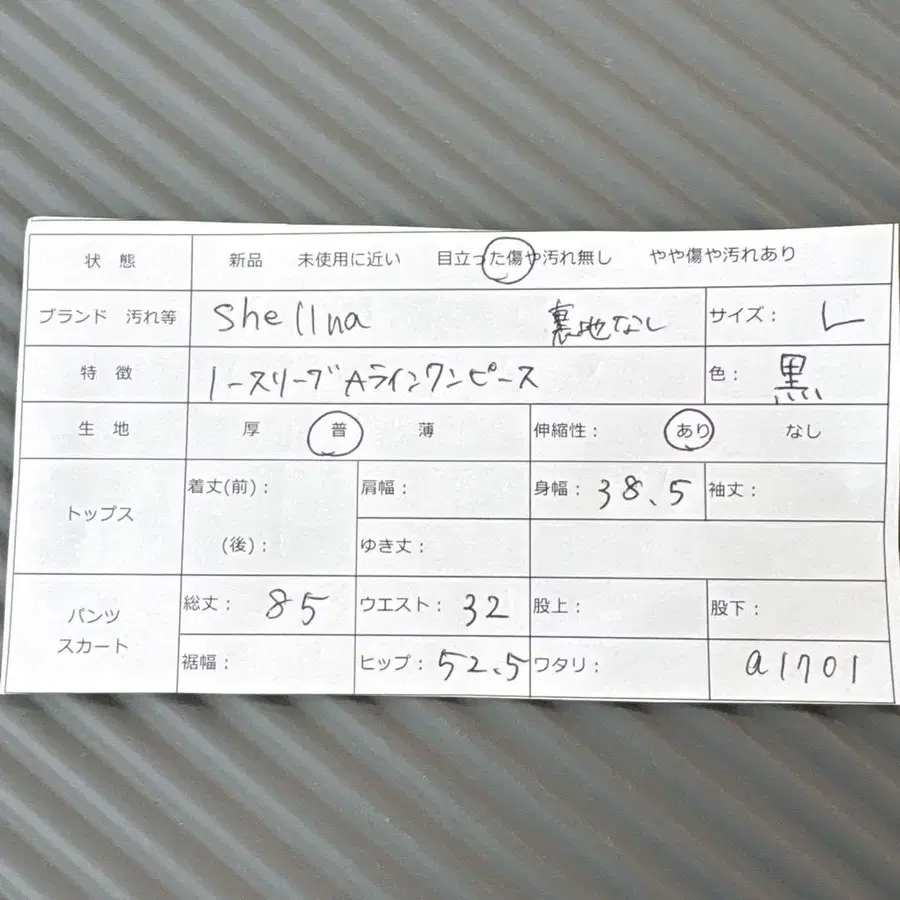 状 態 新品 未使用に近い 目立った傷や汚れ無し やや傷や汚れあり
ブランド 汚れ等 Shellna 裏地なし サイズ: L
特 徴 ノースリーブAラインワンピース 色: 黒
生 地 厚 普 薄 伸縮性: あり なし
トップス 着丈(前): 肩幅: 身幅: 38.5 袖丈:
(後): ゆき丈:
パンツ スカート 総丈: 85 ウエスト: 32 股上: 股下:
裾幅: ヒップ: 52.5 ワタリ: a1701